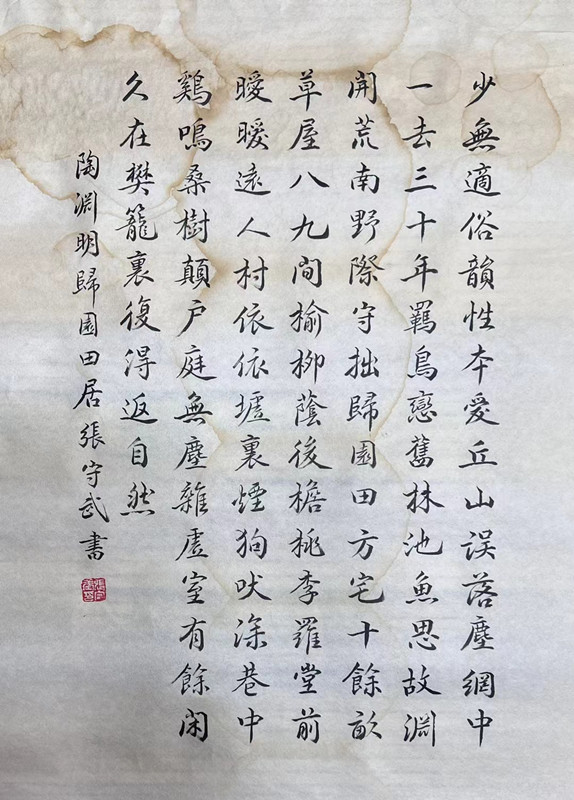 少無適俗韻性本愛丘山误落塵網中
一去三十年羁鳥戀舊林池魚思故淵
開荒南野際守拙歸園田方宅十餘畝
草屋八九間榆柳蔭後檐桃李羅堂前
曖曖遠人村依依墟裏煙狗吠深巷中
鷄鳴桑樹顛户庭無塵雜虛室有餘閑
久在樊籠裏復得返自然
陶淵明歸園田居張守武書